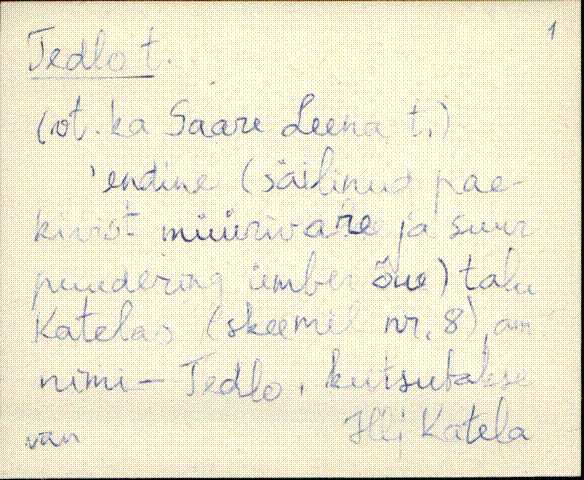 1
Tedlo t.
(vt. ka Saare Leena t.)
'endine (säilinud pae-
kivist müürivare ja suur
puudering ümber õue) talu
Katelas (skeemil nr. 8), am.
nimi - Tedlo, kutsutakse
van Illi Katela